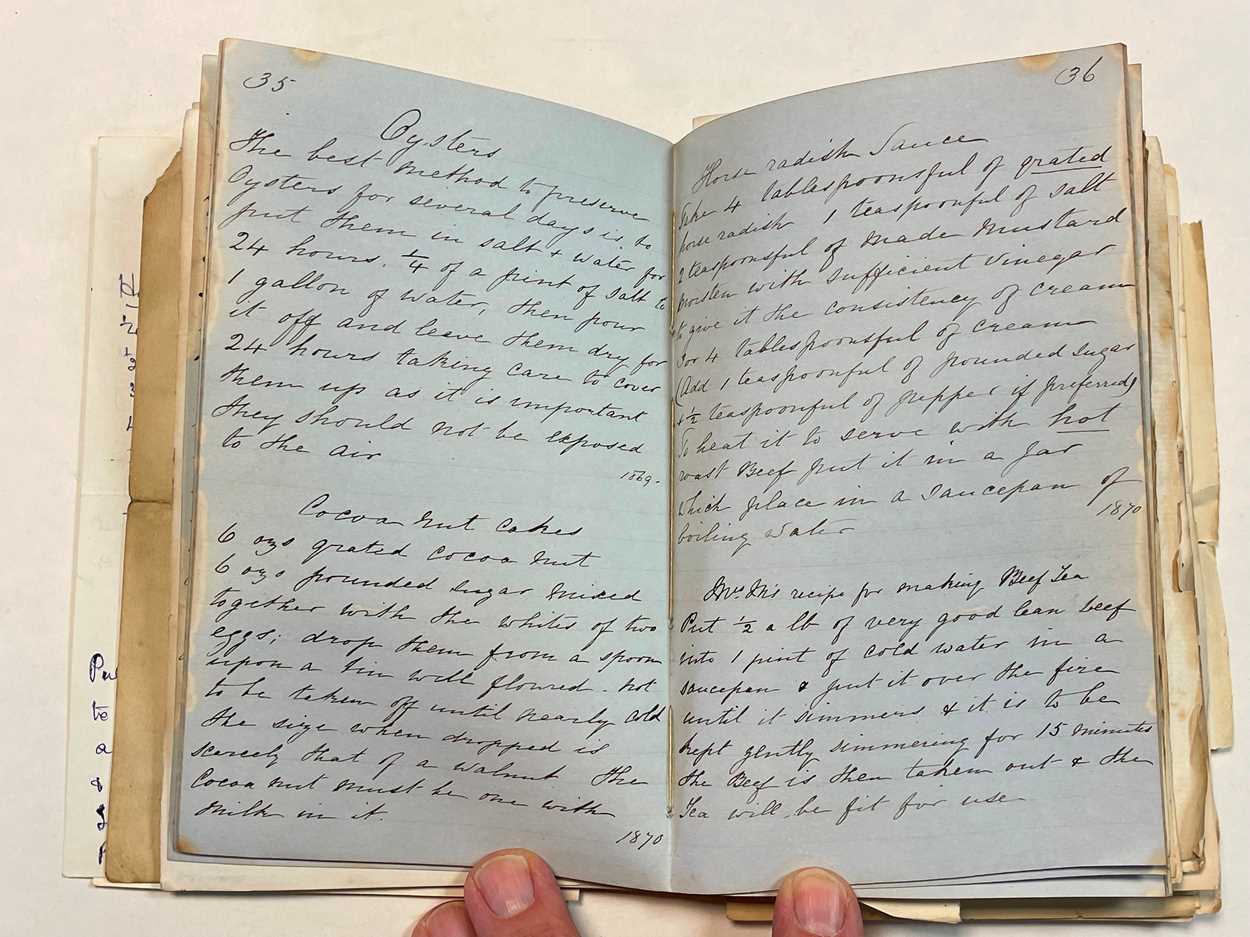 35
Oysters
The best method to preserve
Oysters for several days is, to
put them in salt & water for
24 hours. ¼ of a pint of salt to
1 gallon of water, then pour
it off and leave them dry for
24 hours taking care to cover
them up as it is important
they should not be exposed
to the air
1869.
Cocoa nut cakes
6 ozs grated cocoa nut
6 ozs pounded sugar mixed
together with the whites of two
eggs; drop them from a spoon
upon a tin well floured. not
to be taken off until nearly cold
the size when dropped is
scarcely that of a walnut The
Cocoa nut must be one with
milk in it.
1870
36
Horse radish Sauce
Take 4 tablespoonsful of grated
horse radish 1 teaspoonful of salt
2 teaspoonsful of made mustard
moisten with sufficient vinegar
to give it the consistency of cream
3 or 4 tablespoonsful of cream
(Add 1 teaspoonful of pounded sugar
& ½ teaspoonful of pepper if preferred)
To heat it to serve with hot
roast Beef put it in a jar
which place in a saucepan of
boiling water
1870
recipe for making Beef Tea
Put ½ a lb of very good lean beef
into 1 pint of cold water in a
saucepan & put it over the fire
until it simmers & it is to be
kept gently simmering for 15 minutes
the Beef is then taken out & the
Tea will be fit for use